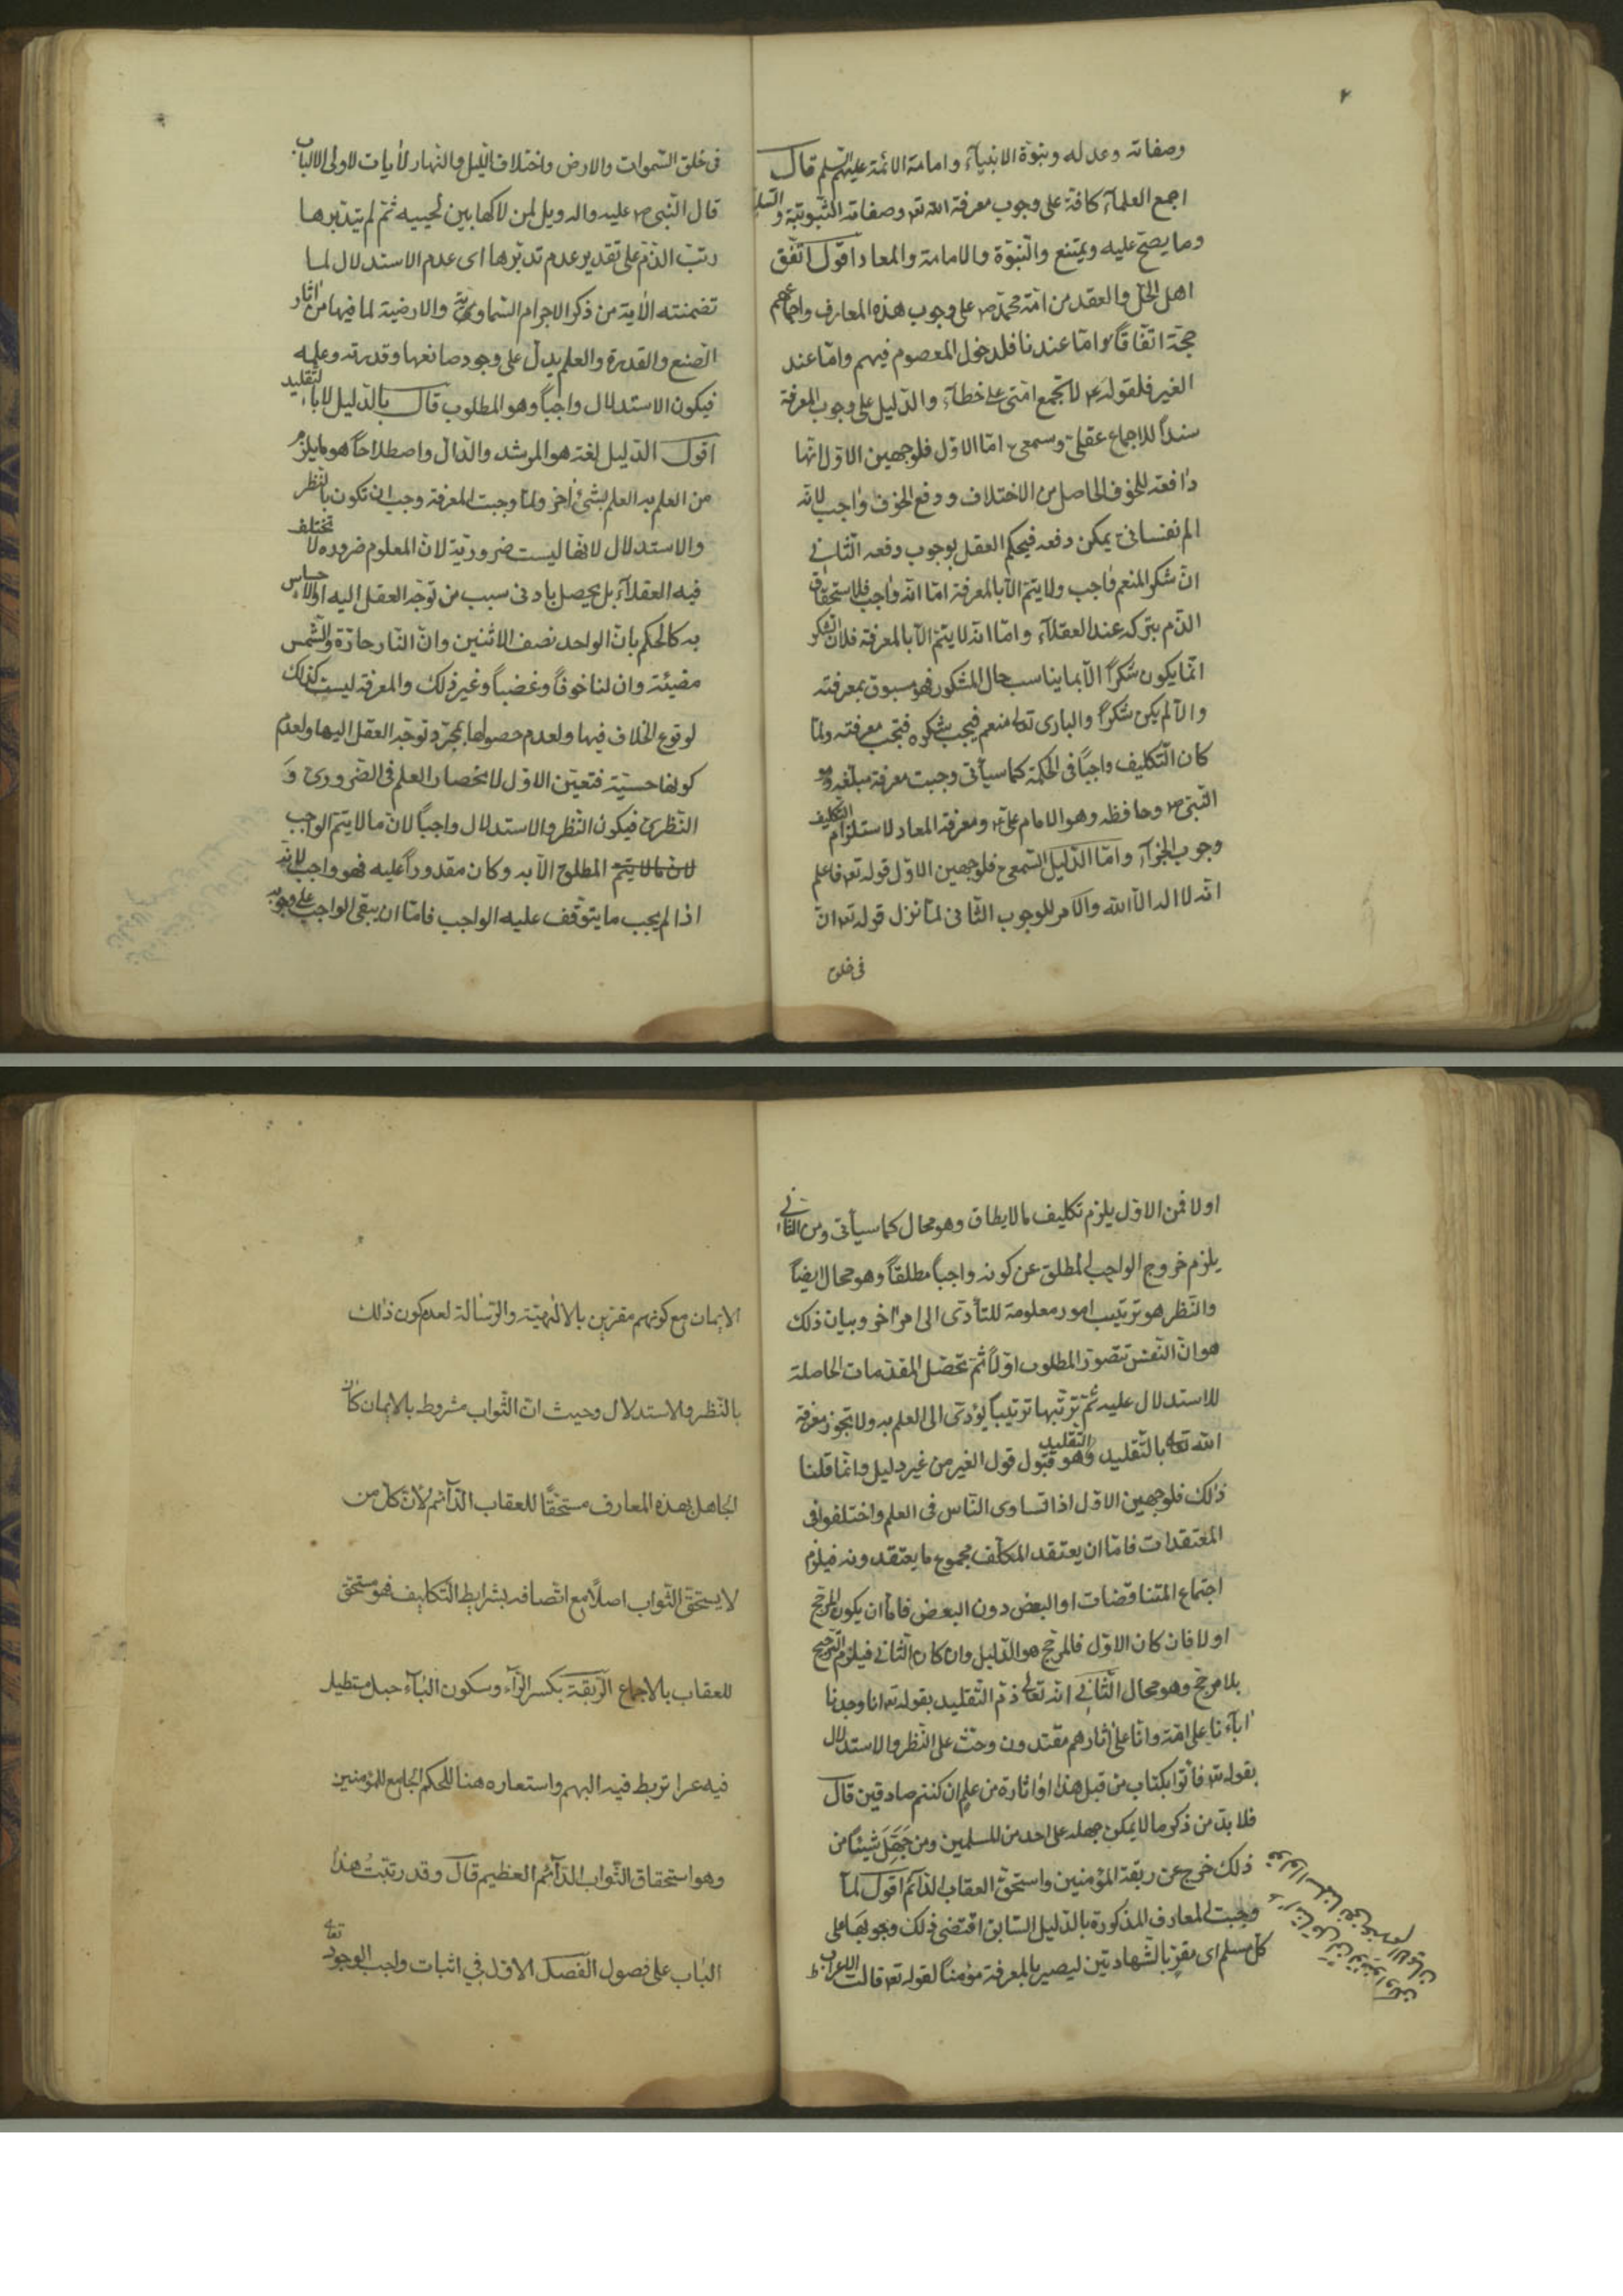 ٢
وصفاته وعدله ونبوّة الانبيآء وامامة الائمّة عليهم السّلم قال
اجمع العلمآء كافة على وجوب معرفة الله تعه وصفاته الثّبوتيّة والسلبيه
وما يصحّ عليه ويمتنع والنّبوّة والامامة والمعاد اقول اتّفق
اهل الحلّ والعقد من امّة محمّد ص على وجوب هذه المعارف واجماعهم
حجّة اتّفاقاً امّا عندنا فلدخول المعصوم فيهم وامّا عند
الغير فلقوله ع لا تجمع امّتى على خطآء والدّليل على وجوب المعرفة
سنداً للاجماع عقلىّ وسمعى امّا الاوّل فلوجهين الاوّل انّها
دافعة للخوف الحاصل من الاختلاف ودفع الخوف واجب لانّه
الم نفسانىّ يمكن دفعه فيحكم العقل بوجوب دفعه الثّانى
انّ شكر المنعم واجب ولا يتمّ الّا بالمعرفة امّا انّه واجب فلاستحقاق
الذّم بتركه عند العقلآء وامّا انّه لا يتمّ الّا بالمعرفة فلانّ الشكر
انّما يكون شكراً الّا بما يناسب حال المشكور فهو مسبوق بمعرفته
والّا لم يكن شكراً والبارى تعالى منعم فيجب شكره فتجب معرفته ولمّا
كان التّكليف واجباً فى الحكمة كما سيأتى وجبت معرفة مبلّغه وهو
النّبىّ ص وحافظه وهو الامام ع ومعرفة المعاد لاستلزام التكليف
وجوب الجزآء وامّا الدّليل السّمعى فلوجهين الاوّل قوله تعه فاعلم
انّه لا اله الّا الله والامر للوجوب الثّانى لمّا نزل قوله تعه انّ
فى خلق
فى خلق السّموات والارض واختلاف اللّيل والنّهار لأيات لاولى الالباب
قال النّبى ص عليه واله ويل لمن لاكها بين لحييه ثمّ لم يتدبّرها
رتّب الذّم على تقدير عدم تدبّرها اى عدم الاستدلال لما
تضمنته الأية من ذكر الاجرام السّماويّة والارضية لما فيها من اثار
الصّنع والقدرة والعلم يدلّ على وجود صانعها وقدرته وعلمه
فيكون الاستدلال واجباً وهو المطلوب قال بالدّليل لا بالتقليد
اقول الدّليل لغة هو المرشد والدالّ واصطلاحاً هو ما يلزم
من العلم به العلم بشئ اخر ولمّا وجبت المعرفة وجب ان تكون بالنّظر
والاستدلال لانّها ليست ضروريّة لانّ المعلوم ضرورة لا تختلف
فيه العقلآء بل يحصل بادنى سبب من توجّه العقل اليه او الاحساس
به كالحكم بانّ الواحد نصف الاثنين وانّ النّار حارّة والشّمس
مضيئة وان لنا خوفاً وغضباً وغير ذلك والمعرفة ليست كذلك
لوقوع الخلاف فيها ولعدم حصولها بمجرّد توجّه العقل اليها ولعدم
كونها حسيّة فتعيّن الاوّل لانحصار العلم فى الضّرورىّ و
النّظرىّ فيكون النّظر والاستدلال واجباً لانّ ما لا يتمّ الواجب
لان ما لا يتم المطلق الّا به وكان مقدوراً عليه فهو واجب لانّه
اذا لم يجب ما يتوقّف عليه الواجب فامّا ان يبقى الواجب على وجوبه
اولا فمن الاوّل يلزم تكليف ما لا يطاق وهو محال كما سيأتى ومن الثّانى
يلزم خروج الواجب المطلق عن كونه واجباً مطلقاً وهو محال ايضاً
والنّظر هو ترتيب امور معلومة للتأدّى الى امر اخر وبيان ذلك
هو انّ النّفس تتصوّر المطلوب اوّلاً ثمّ تحصّل المقدّمات الحاصلة
للاستدلال عليه ثمّ ترتّبها ترتيباً يؤدّى الى العلم به ولا تجوز معرفة
الله تعالى بالتّقليد والتقليد وهو قبول قول الغير من غير دليل وانّما قلنا
ذلك فلوجهين الاوّل اذا تساوى النّاس فى العلم واختلفوا فى
المعتقدات فامّا ان يعتقد المكلّف مجموع ما يعتقدونه فيلزم
اجتماع المتناقضات او البعض دون البعض فامّا ان يكون لمرجّح
اولا فان كان الاوّل فالمرجّح هو الدّليل وان كان الثّانى فيلزم التّرجيح
بلا مرجّح وهو محال الثّانى انّه تعالى ذمّ التّقليد بقوله تعه انا وجدنا
ابآءنا على امّة وانّا على اثارهم مقتدون وحثّ على النّظر والاستدلال
بقوله تعه فأتوا بكتاب من قبل هذا او اثارة من علم ان كنتم صادقين قال
فلا بدّ من ذكر ما لا يمكن جهله على احد من المسلمين ومن جَهِلَ شيئاً من
ذلك خرج عن ربقة المؤمنين واستحقّ العقاب الدّائم اقول لمّا
وجبت المعارف المذكورة بالدّليل السّابق اقتضى ذلك وجوبها على
كلّ مسلم اى مقرّ بالشّهادتين ليصير بالمعرفة مؤمناً لقوله تعه قالت الاعراب
الايمان مع كونهم مقرّين بالالٰهيّة والرّسالة لعدم كون ذلك
بالنّظر والاستدلال وحيث انّ الثّواب مشروط بالايمان كان
الجاهل بهذه المعارف مستحقًّا للعقاب الدّآئم لانّ كلّ من
لا يستحقّ الثّواب اصلًا مع اتّصافه بشرايط التّكليف فهو مستحق
للعقاب بالاجماع الرّبقة بكسر الرّآء وسكون البٰآء حبل مستطيل
فيه عرا تربط فيه البهم واستعاره هنا للحكم الجامع للمؤمنين
وهو استحقاق الثّواب الدّآئم العظيم قال وقد رتّبتُ هذا
الباب على فصول الفصل الاوّل في اثبات واجب الوجود تعا